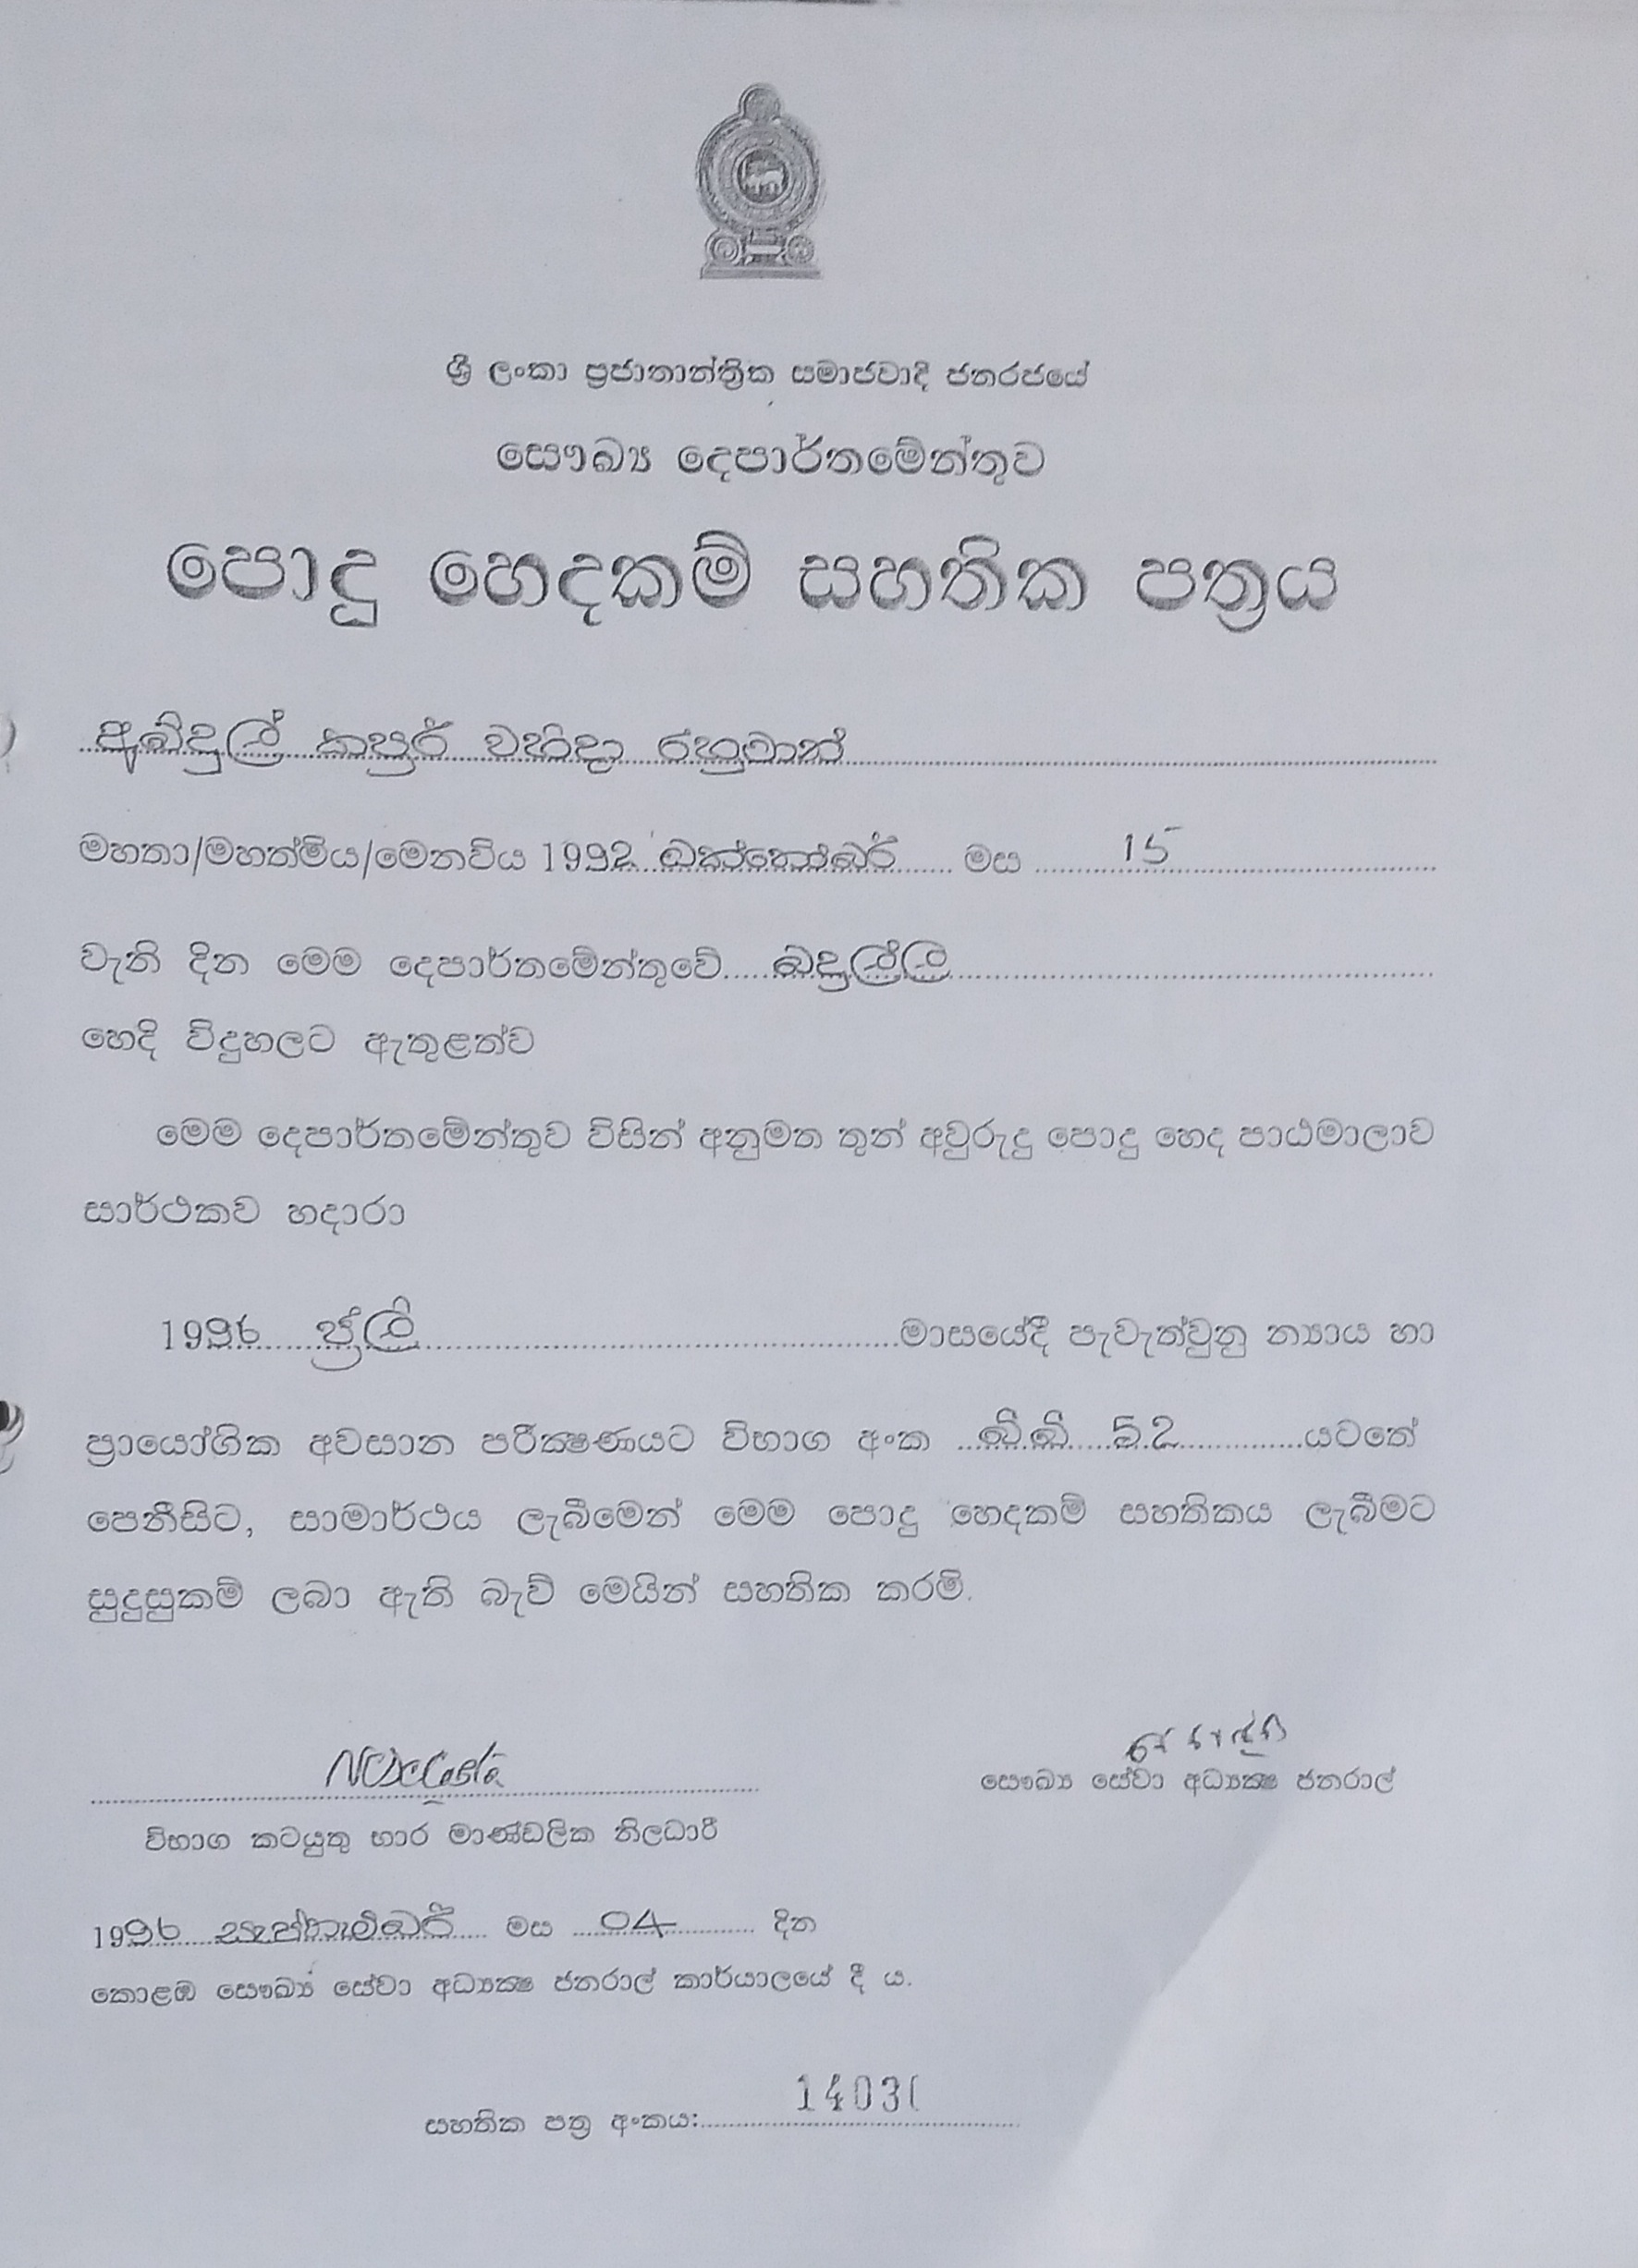 ශ්‍රී ලංකා ප්‍රජාතාන්ත්‍රික සමාජවාදී ජනරජයේ
සෞඛ්‍ය දෙපාර්තමේන්තුව
පොදු හෙදකම් සහතික පත්‍රය
අබ්දුල් කපුර් වහිදා රහුමාන්
මහතා/මහත්මිය/මෙනවිය 1992 ඔක්තෝබර් මස 15
වැනි දින මෙම දෙපාර්තමේන්තුවේ බදුල්ල
හෙදි විදුහලට ඇතුළත්ව
මෙම දෙපාර්තමේන්තුව විසින් අනුමත තුන් අවුරුදු පොදු හෙද පාඨමාලාව
සාර්ථකව හදාරා
1996 ජුලි මාසයේදී පැවැත්වුනු න්‍යාය හා
ප්‍රායෝගික අවසාන පරීක්ෂණයට විභාග අංක බී.බී. 52 යටතේ
පෙනීසිට, සාමාර්ථය ලැබීමෙන් මෙම පොදු හෙදකම් සහතිකය ලැබීමට
සුදුසුකම් ලබා ඇති බැව් මෙයින් සහතික කරමි.
සෞඛ්‍ය සේවා අධ්‍යක්ෂ ජනරාල්
විභාග කටයුතු භාර මාණ්ඩලික නිලධාරී
1996 සැප්තැම්බර් මස 04 දින
කොළඹ සෞඛ්‍ය සේවා අධ්‍යක්ෂ ජනරාල් කාර්යාලයේ දී ය.
14031
සහතික පත්‍ර අංකය: